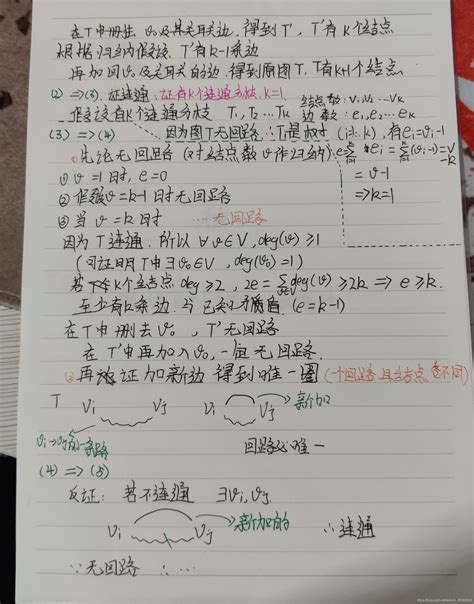 在T中删去v₀及其关联边,得到T',T'有k个结点
根据归纳假设,T'有k-1条边
再加回v₀及关联的边,得到原图T,T有k+1个结点
(2)=>(3).证连通,证有k个连通分枝,k=1.
假设有k个连通分枝 T₁,T₂...Tₖ 结点数:v₁,v₂...vₖ
边数:e₁,e₂...eₖ
(3)=>(4) 因为图T无回路,∴Tᵢ是树(i≤k),有eᵢ=vᵢ-1
①先论无回路(对结点数v作归纳) e=∑eᵢ=∑(vᵢ-1)=v-k
① v=1时,e=0 =v-1
② 假设v=k-1时无回路 =>k=1
③ 当v=k时 ...无回路
因为T连通,所以∀v∈V,deg(v)≥1
(可证明T中∃v₀∈V,deg(v₀)=1)
若k个结点deg≥2,2e=∑deg(v)≥2k=>e≥k.
至少有k条边,与已知矛盾.(e=k-1)
在T中删去v₀,T'无回路
在T'中再加入v₀,一直无回路.
②再证加新边得到唯一圈(一个回路且结点都不同)
T vᵢ vⱼ vᵢ vⱼ 新加
vᵢ→vⱼ有一条路 回路必唯一
(4)=>(5)
反证:若不连通 ∃vᵢ,vⱼ
vᵢ vⱼ 新加的 ∴连通
∵无回路 ∴...